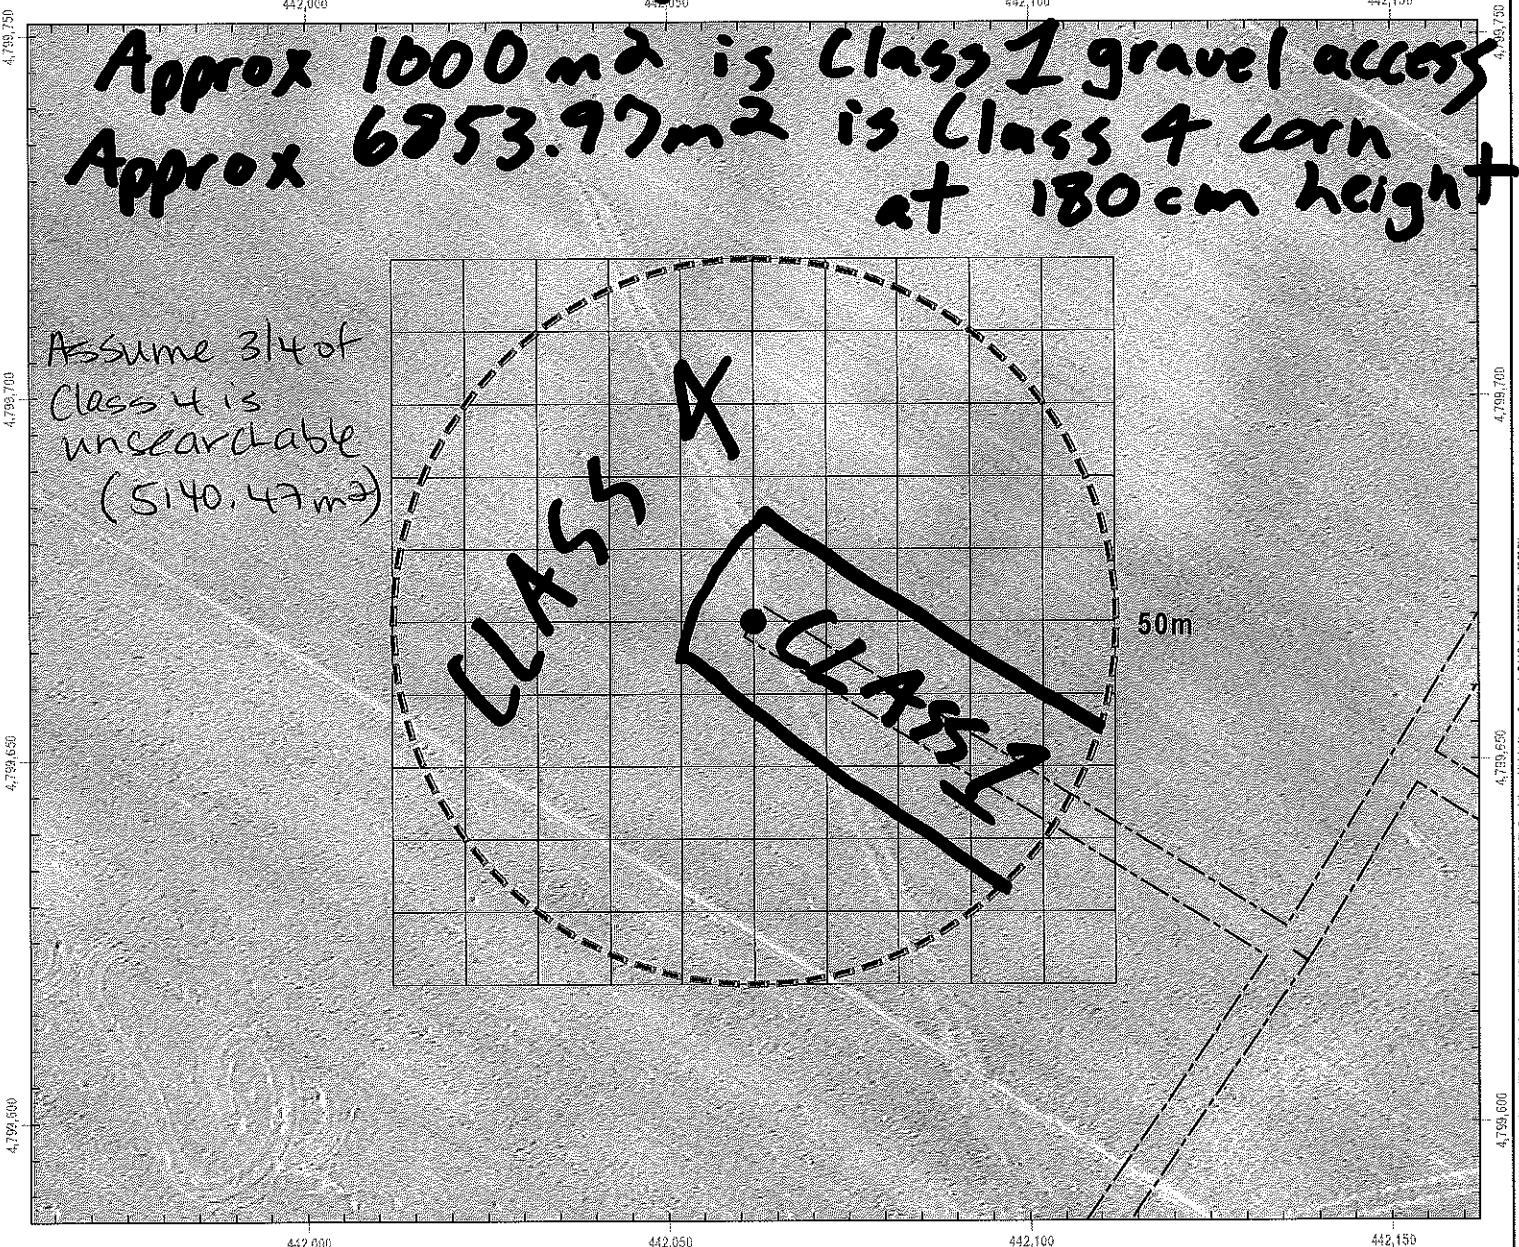 442,000 442,050 442,100 442,150
4,799,750 4,799,750
Approx 1000 m2 is Class 1 gravel access
Approx 6853.97m2 is Class 4 corn
at 180cm height
Assume 3/4 of
Class 4 is
unsearchable
(5140.47m2)
4,799,700 4,799,700
CLASS 4
50m
CLASS 1
4,799,650 4,799,650
4,799,600 4,799,600
442,000 442,050 442,100 442,150